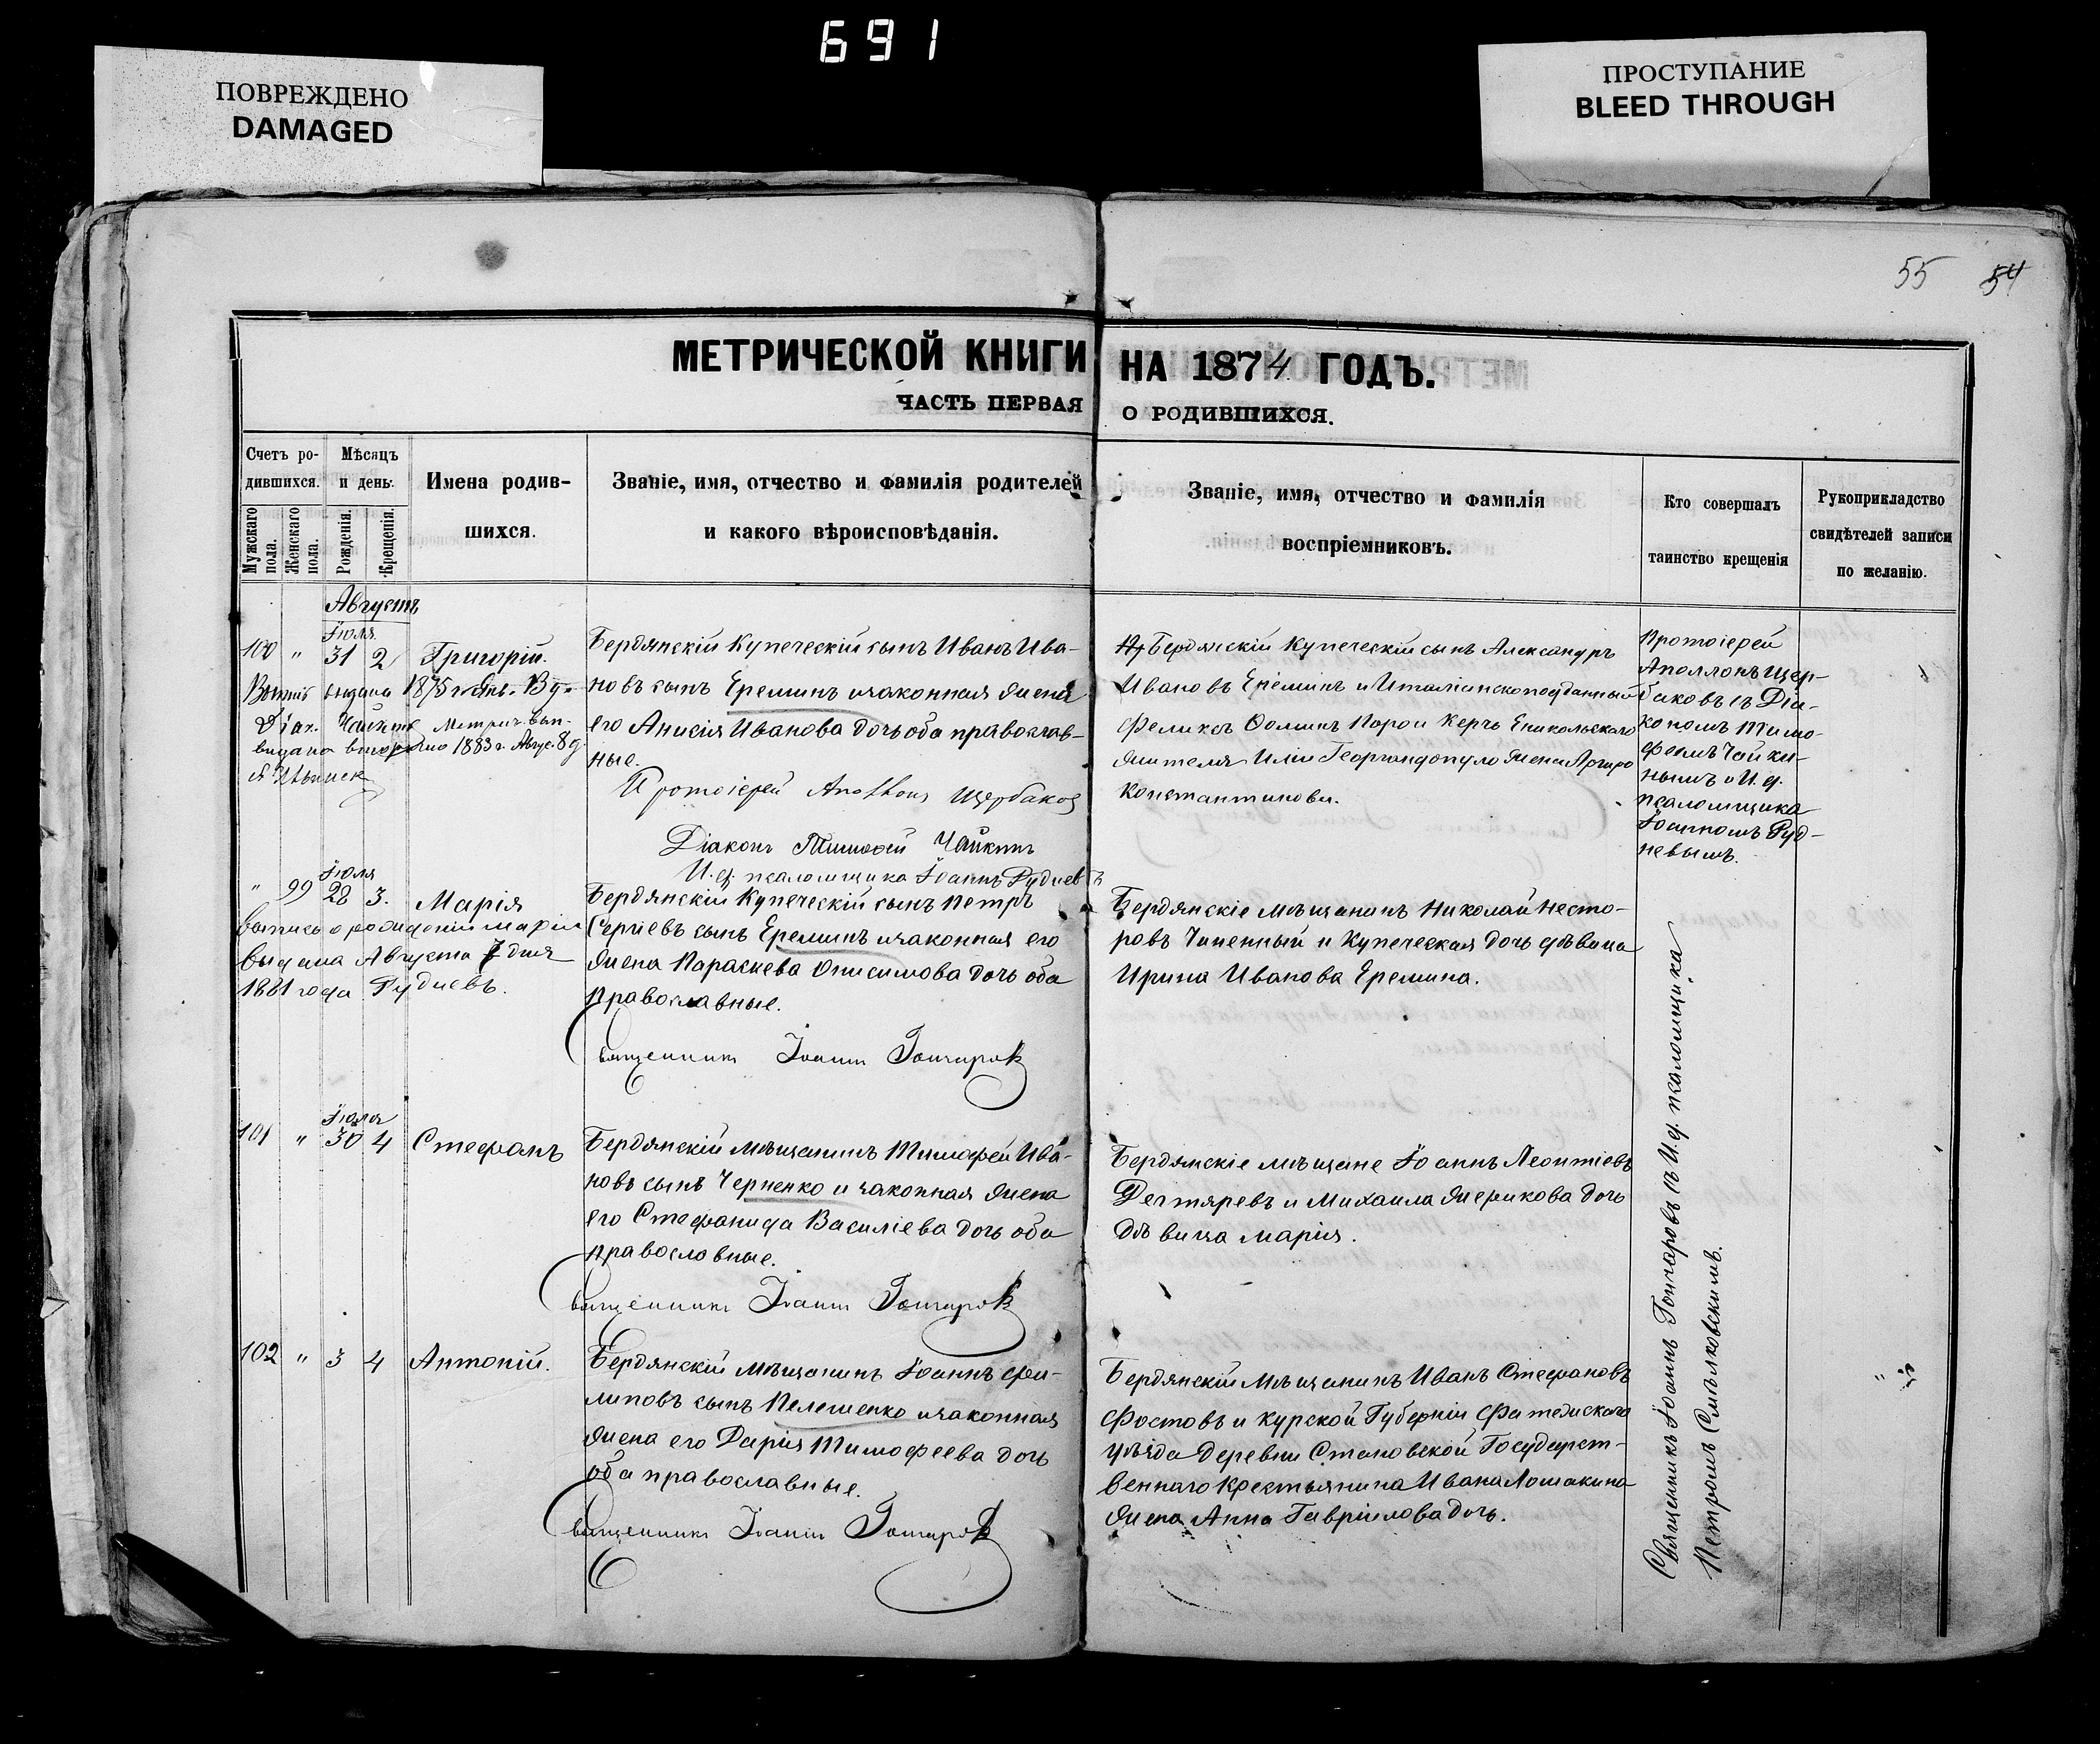 691
ПОВРЕЖДЕНО
DAMAGED
ПРОСТУПАНИЕ
BLEED THROUGH
55 54
МЕТРИЧЕСКОЙ КНИГИ НА 1874 ГОДЪ.
ЧАСТЬ ПЕРВАЯ О РОДИВШИХСЯ.
Счетъ ро-
дившихся.
Мужскаго пола.
Женскаго пола.
Мѣсяцъ
и день.
Рожденія.
Крещенія.
Имена родив-
шихся.
Званіе, имя, отчество и фамилія родителей
и какого вѣроисповѣданія.
Званіе, имя, отчество и фамилія
воспріемниковъ.
Кто совершалъ
таинство крещенія
Рукоприкладство
свидѣтелей записи
по желанію.
Августъ
Іюля
100 " 31 2 Григорій.
выдана 1875 г. Янв. 13 д.
Діак. Чайкинъ Метрич. вып.
выдана вторично 1883 г. Авгус. 8 д.
Бердянскій Купеческій сынъ Иванъ Ива-
новъ сынъ Ереминъ и законная жена
его Анисія Иванова дочь оба православ-
ные.
Протоіерей Аполлонъ Щербаковъ
Діаконъ Тимофей Чайкинъ
И. д. псаломщика Іоаннъ Рудневъ
Бердянскій Купеческій сынъ Александръ
Ивановъ Ереминъ и Италіанскоподданный
Феликсъ Ѳоминъ Порои Керчь Еникольскаго
жителя Иліи Георгиандопуло жена Аргиро
Константинова.
Протоіерей
Аполлонъ Щер-
баковъ съ Діа-
кономъ Тимо-
феемъ Чайки-
нымъ и И. д.
псаломщика
Іоанномъ Руд-
невымъ.
Іюля
" 99 28 3. Марія
Выпись о рожденіи Маріи
выдана Августа 7 дня
1881 года Рудневъ.
Бердянскій Купеческій сынъ Петръ
Сергіевъ сынъ Ереминъ и законная его
жена Параскева Онисимова дочь оба
православные.
Священникъ Іоаннъ Гончаровъ
Бердянскіе мѣщанинъ Николай Несто-
ровъ Чиненный и Купеческая дочь дѣвица
Ирина Иванова Еремина.
Іюля
101 " 30 4 Стефанъ
Бердянскій мѣщанинъ Тимофей Ива-
новъ сынъ Черненко и законная жена
его Стефанида Василіева дочь оба
православные.
Священникъ Іоаннъ Гончаровъ
Бердянскіе мѣщане Іоаннъ Леонтіевъ
Дегтяревъ и Михаила Жерикова дочь
дѣвица Марія.
102 " 3 4 Антоній.
Бердянскій мѣщанинъ Іоаннъ Фи-
липовъ сынъ Пелешенко и законная
жена его Дарія Тимофеева дочь
оба православные.
Священникъ Іоаннъ Гончаровъ
Бердянскій мѣщанинъ Иванъ Стефановъ
Фостовъ и Курской Губерніи Фатежскаго
уѣзда Деревни Становской Государст-
веннаго Крестьянина Ивана Лошакина
жена Анна Гавріилова дочь.
Священникъ Іоаннъ Гончаровъ съ И. д. псаломщика
Петромъ Смѣлковскимъ.